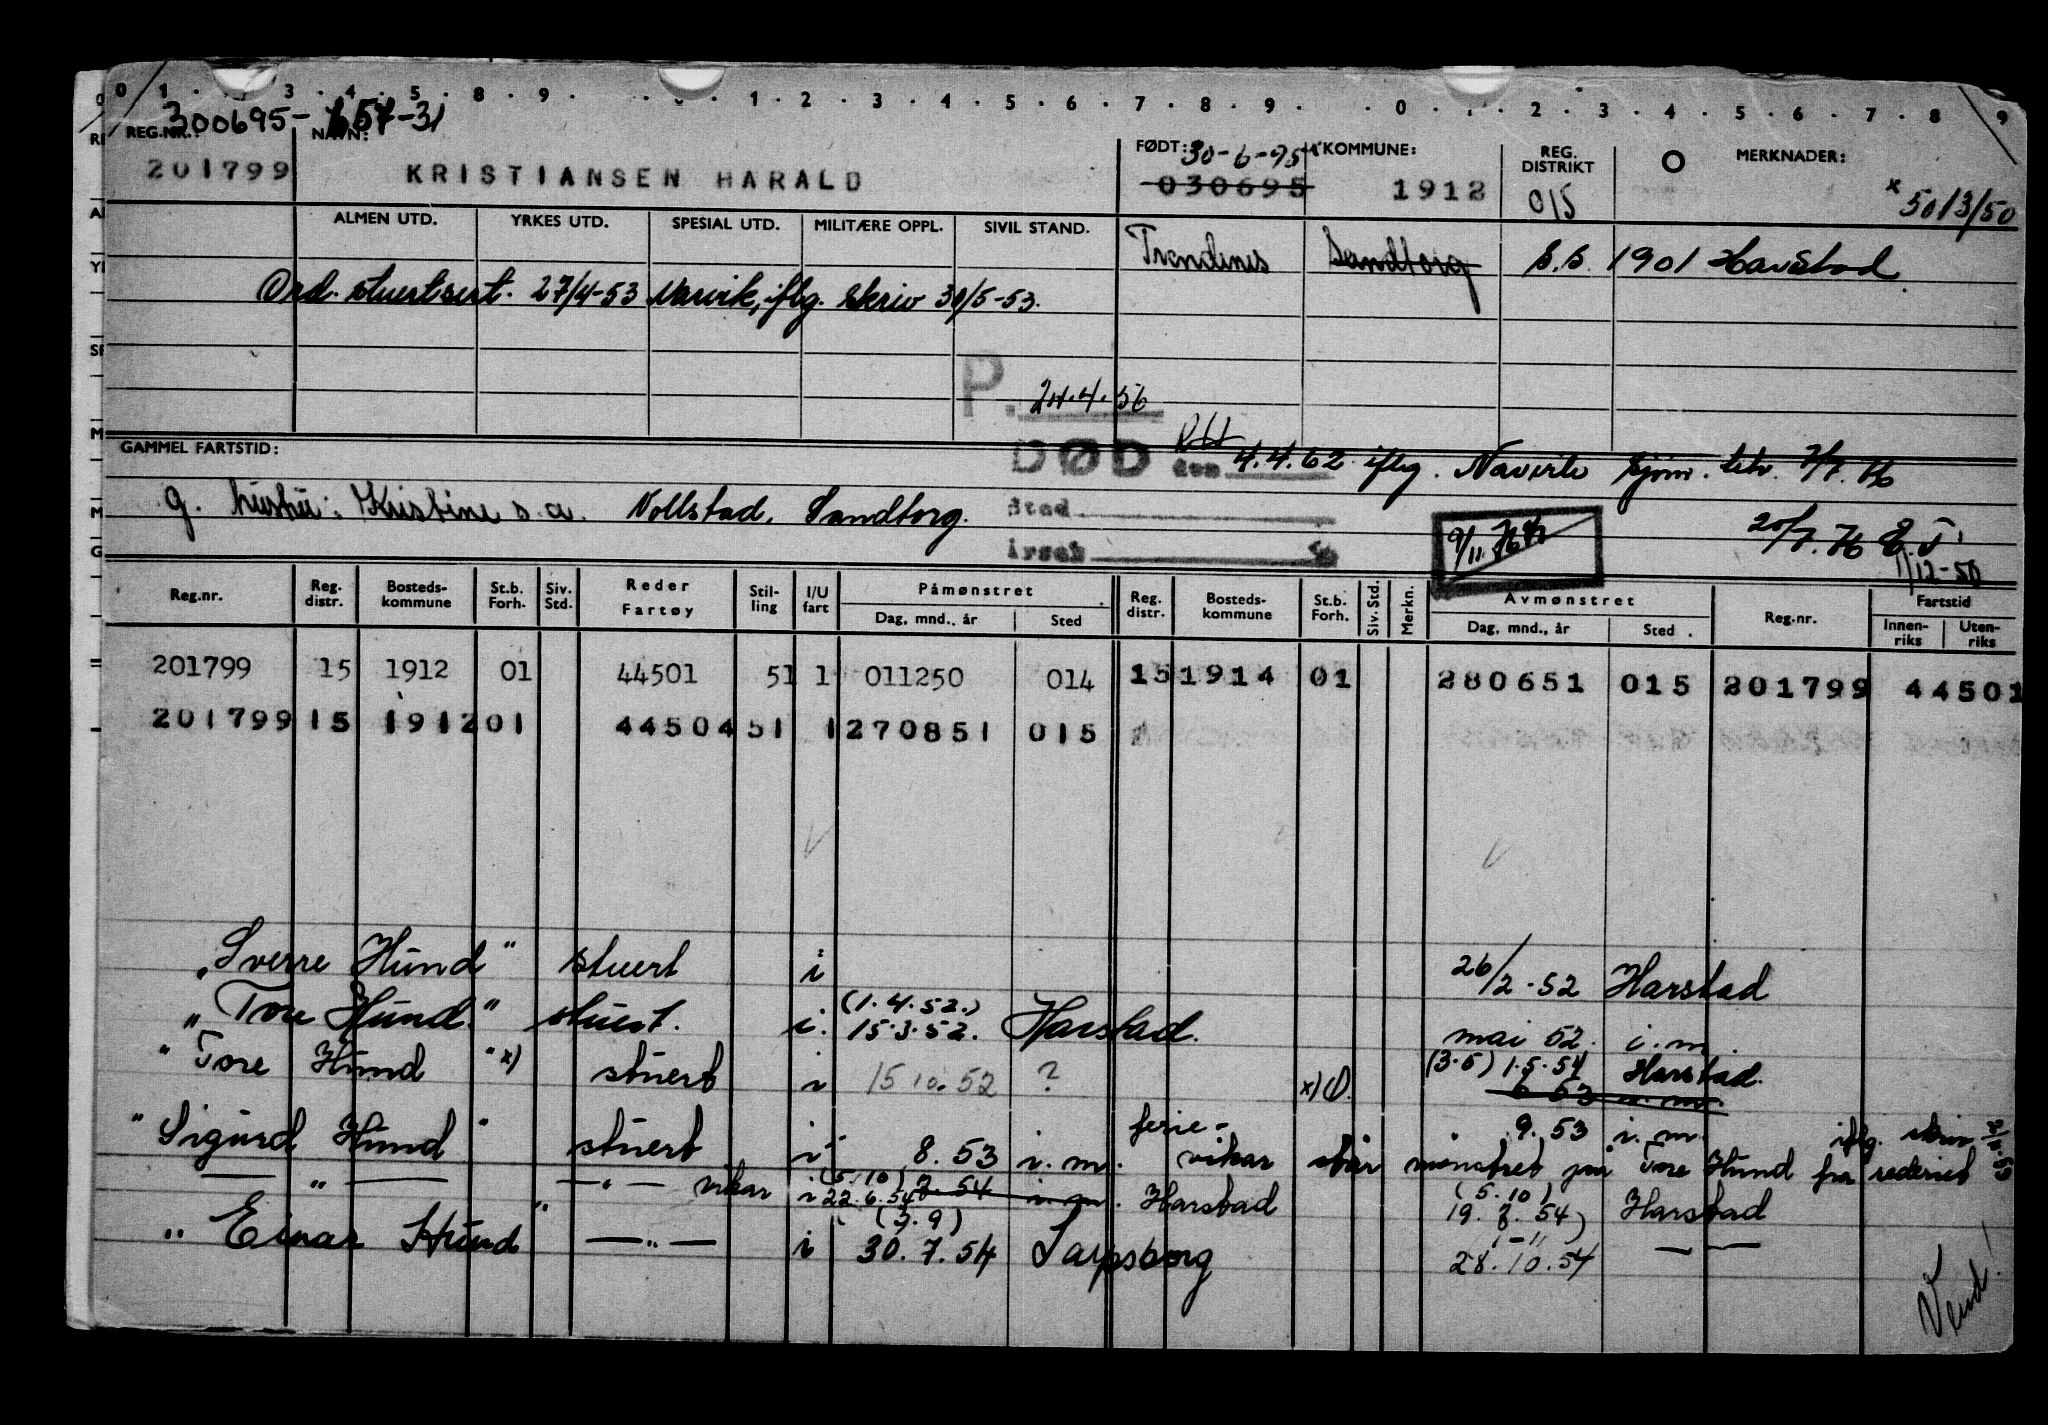 0 1 . . 3 . 4 . 5 . 8 . 9 . . . 1 . 2 . 3 . 4 . 5 . 6 . 7 . 8 . 9 . . 0 . 1 . 2 . 3 . 4 . 5 . 6 . 7 . 8 . 9
300695- 657-31
REG.NR.: NAVN: FØDT: 30-6-95 KOMMUNE: REG. DISTRIKT O MERKNADER:
201799 KRISTIANSEN HARALD 030695 1912 015 x 5013/50
ALMEN UTD. YRKES UTD. SPESIAL UTD. MILITÆRE OPPL. SIVIL STAND. Trondenes Sandtorg S.S. 1901 Harstad
Ord. stuertsert. 27/4-53 Narvik, iflg. skriv 30/5-53.
P. 24.4.56
GAMMEL FARTSTID: DØD den 4.4.62 iflg. 7/7.76
g. hustru: Kristine s.a. Vollstad, Sandtorg. Sted 9/11 76 20/7.76 E.T.
Årsak 1/12-50
Reg.nr. Reg. distr. Bosteds- kommune St.b. Forh. Siv. Std. Reder Fartøy Stil- ling I/U fart Påmønstret Reg. distr. Bosteds- kommune St.b. Forh. Siv. Std. Merkn. Avmønstret Reg.nr. Fartstid
Dag, mnd., år Sted Dag, mnd., år Sted Innen- riks Uten- riks
201799 15 1912 01 44501 51 1 011250 014 15 1914 01 280651 015 201799 44501
201799 15 1912 01 44504 51 1 270851 015
"Sverre Hund" stuert i 26/2.52 Harstad
(1.4.52.)
"Tore Hund." stuert. i. 15.3.52. Harstad. mai 52. i.m.
"Tore Hund" x) stuert i 15 10.52 ? x) (3.5) 1.5.54 Harstad.
6 53 i.m.
"Sigurd Hund" stuert i 8.53 i.m. ferie- vikar 9.53 i.m. iflg. skriv
står mønstret på Tore Hund fra rederiet
— " — — " — vikar i (5.10) 22.6.54 7.54 i.m. Harstad (5.10) 19.7.54) Harstad
(3.9) (-"-)
"Einar Hund" — " — i 30.7.54 Sarpsborg 28.10.54 — " —
Vend!